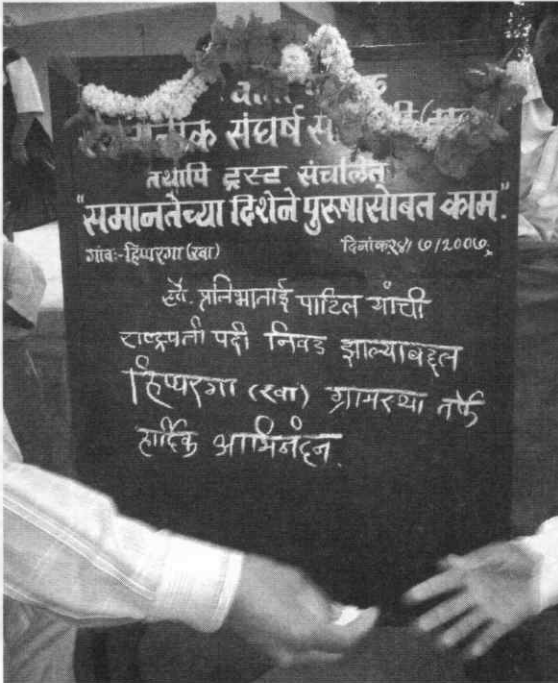 संघर्ष
तथापि ट्रस्ट संचलित
"समानतेच्या दिशेने पुरूषासोबत काम."
गांव:-हिप्परगा (रवा) दिनांक२४/ ७/2007,
सौ. प्रतिभाताई पाटिल यांची
राष्ट्रपती पदी निवड झाल्याबद्दल
हिप्परगा (रवा) ग्रामस्था तर्फे
हार्दिक अभिनंदन.